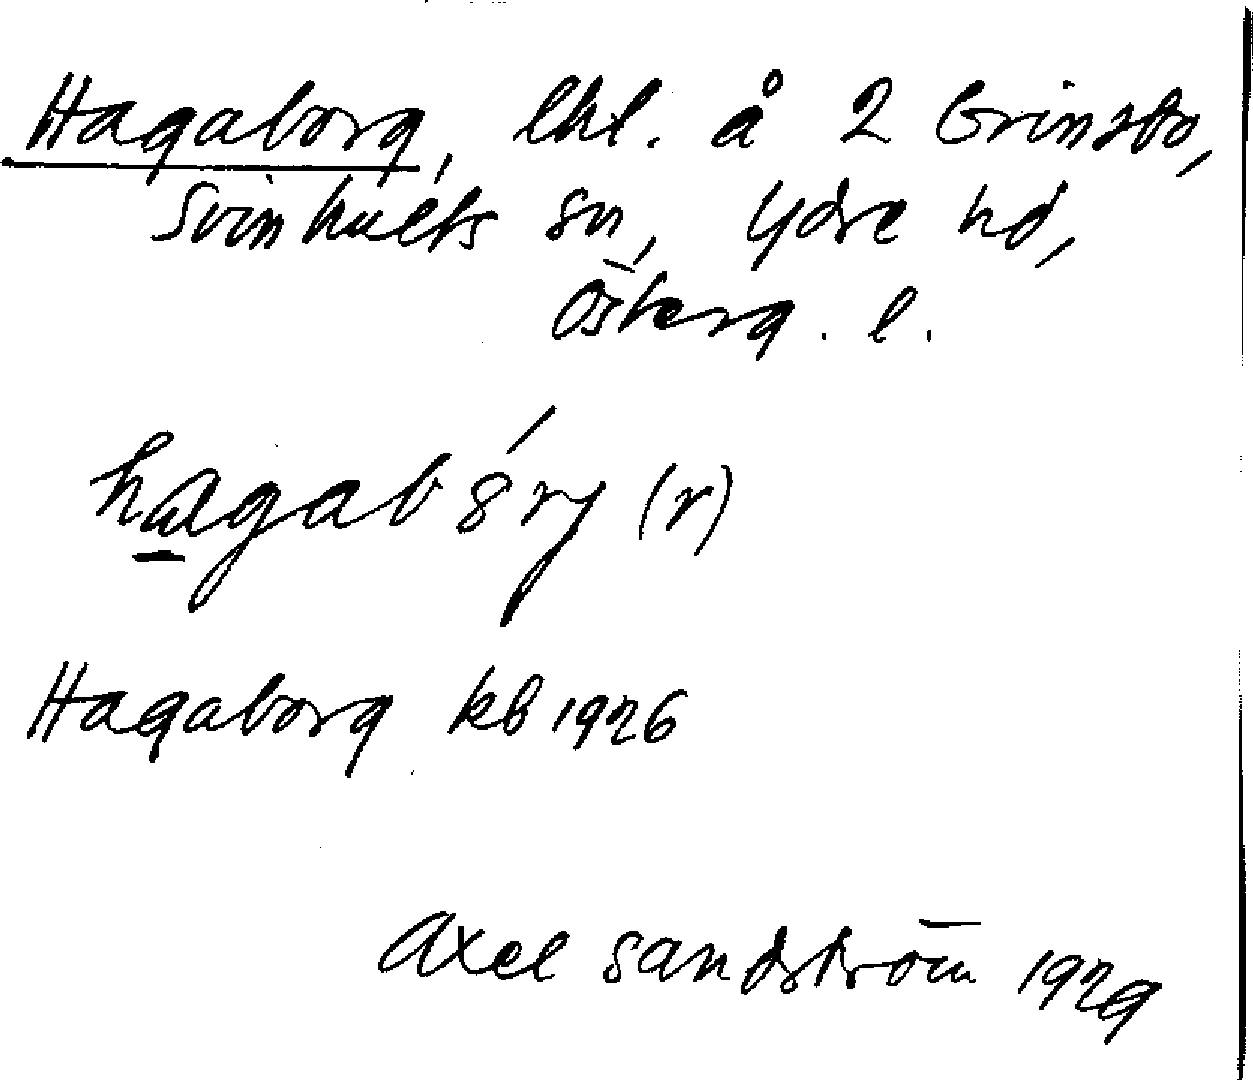 Hagaborg, lht. å 2 Grimsbo,
Svinhults sn, Ydre hd,
Österg. l.
hagabórj (r)
Hagaborg kb 1926
Axel Sandström 1929